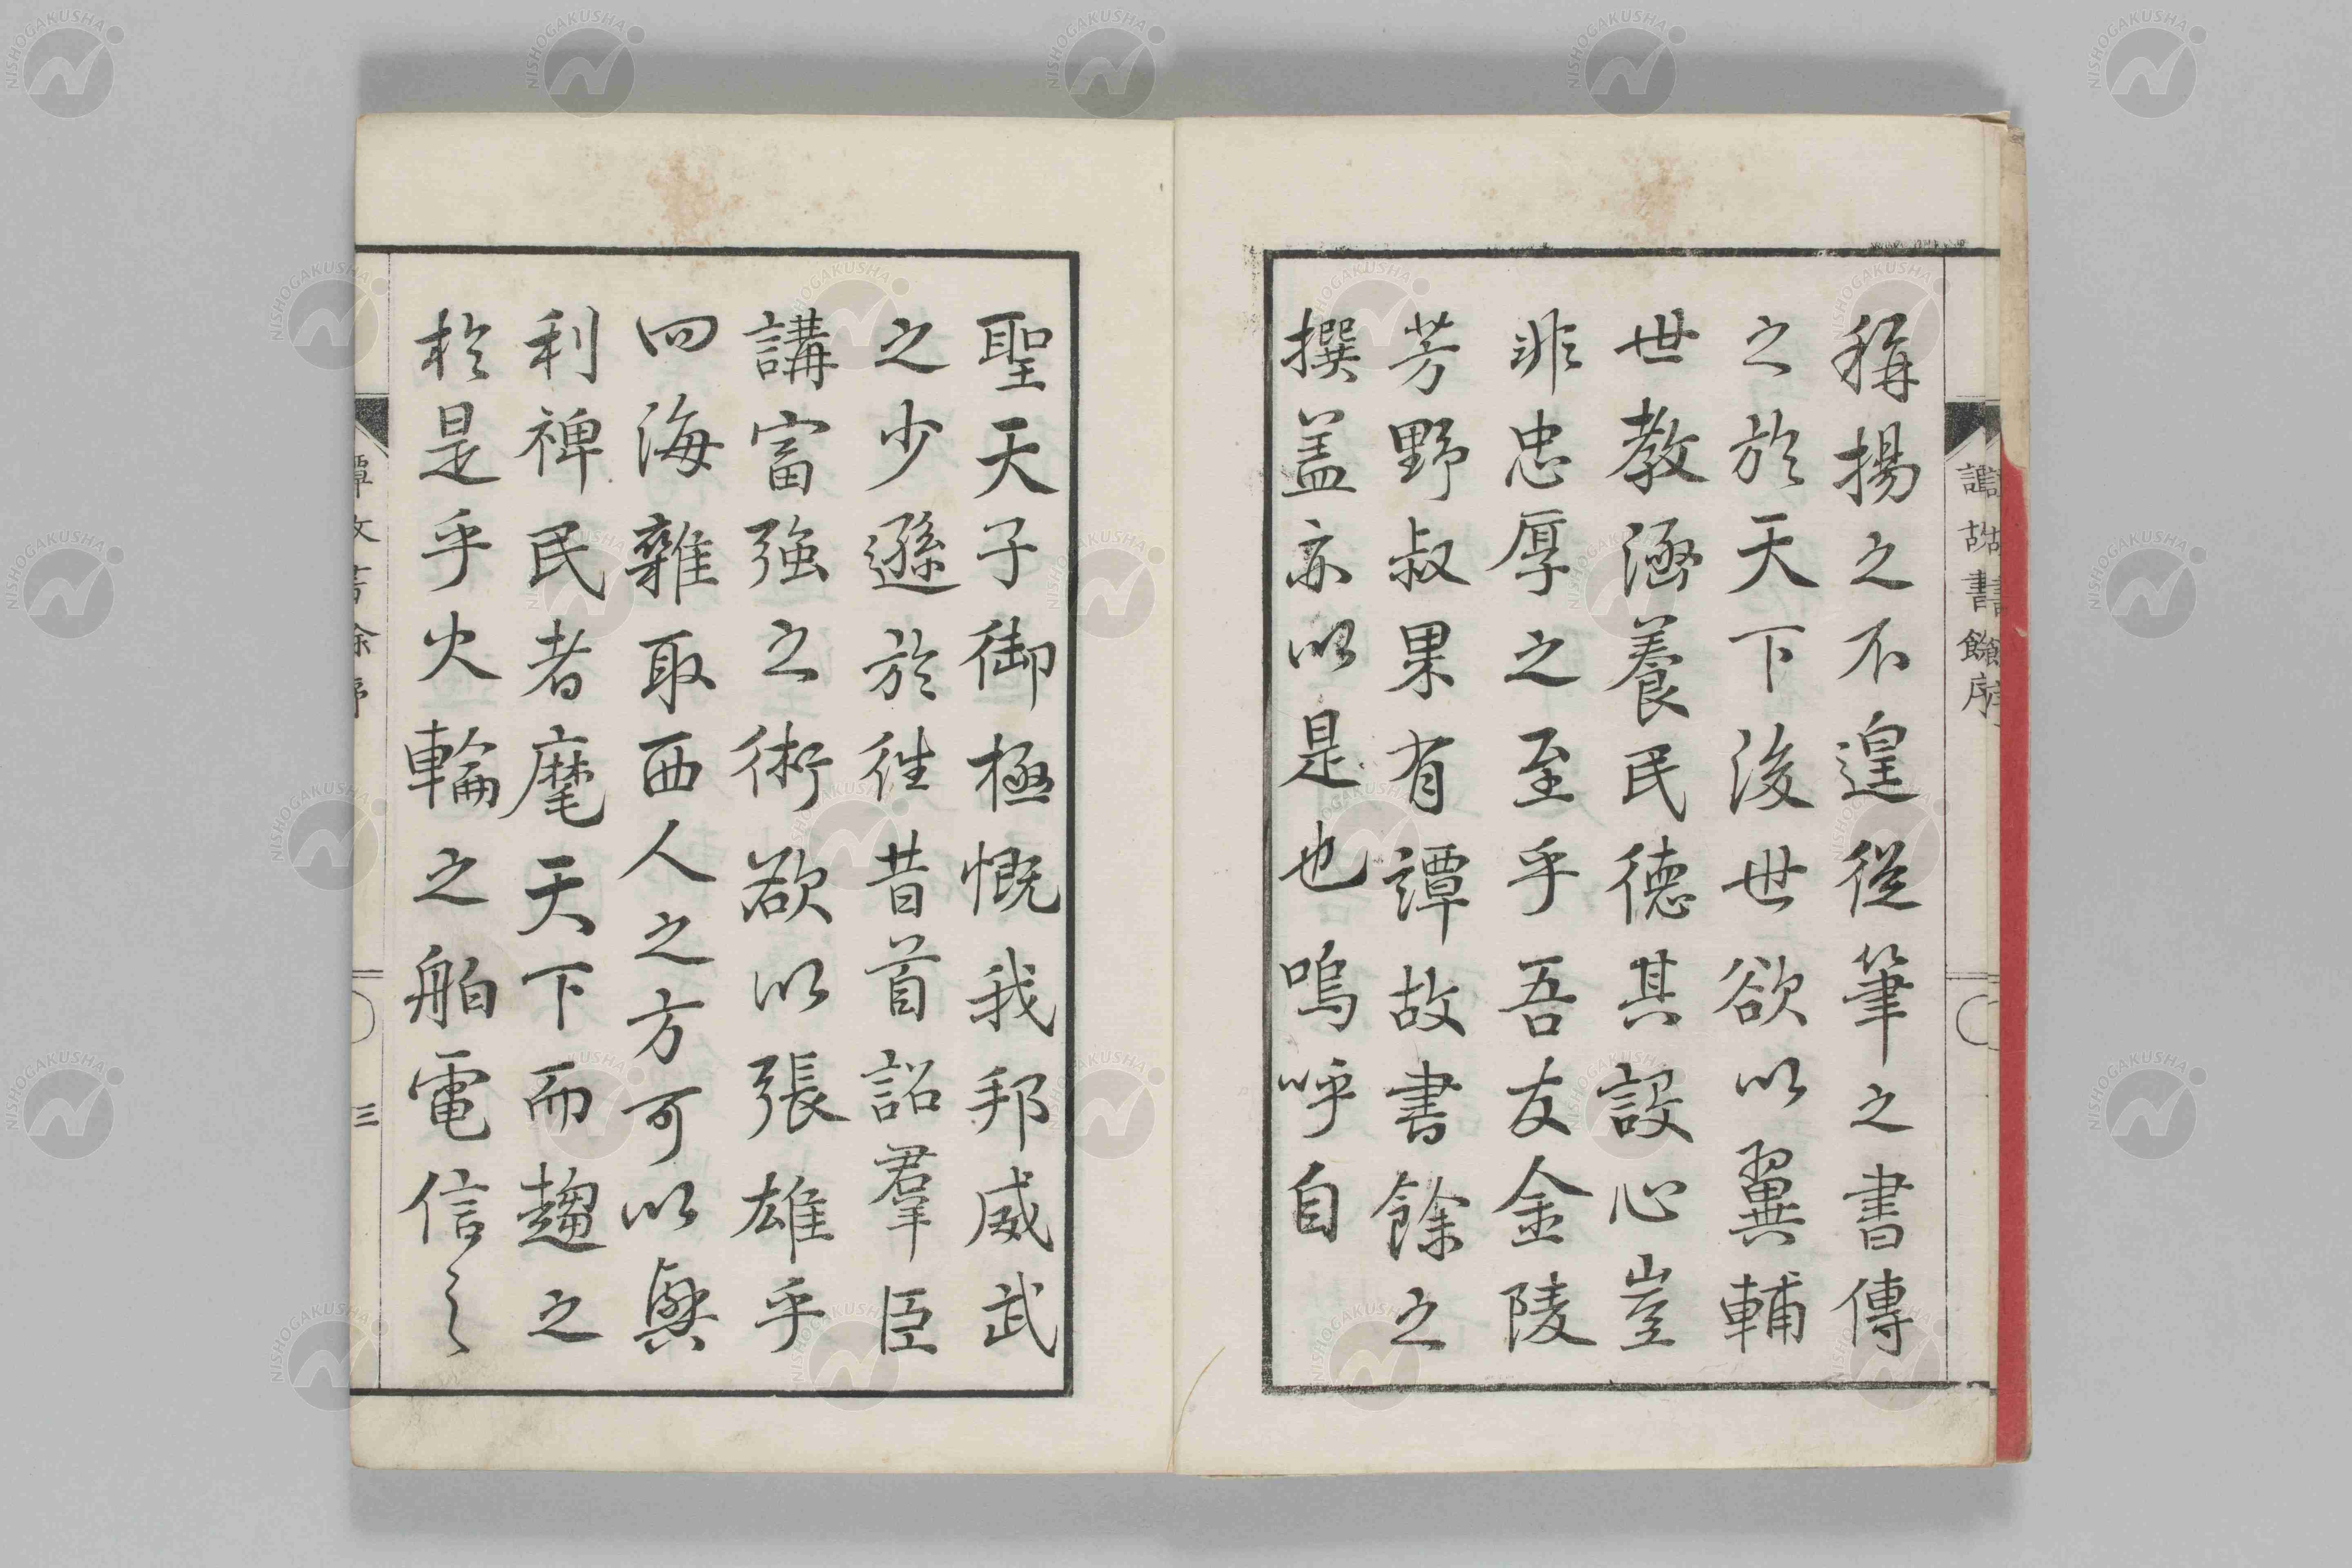 稱揚之不遑從筆之書傳
之於天下後世欲以翼輔
世教涵養民德其設心豈
非忠厚之至乎吾友金陵
芳野叔果有譚故書餘之
撰盖亦以是也嗚呼自
聖天子御極慨我邦威武
之少遜於徃昔首詔羣臣
講富強之術欲以張雄乎
四海雜取西人之方可以興
利裨民者麾天下而趨之
於是乎火輪之舶電信之
譚故書餘序
三
NISHOGAKUSHA